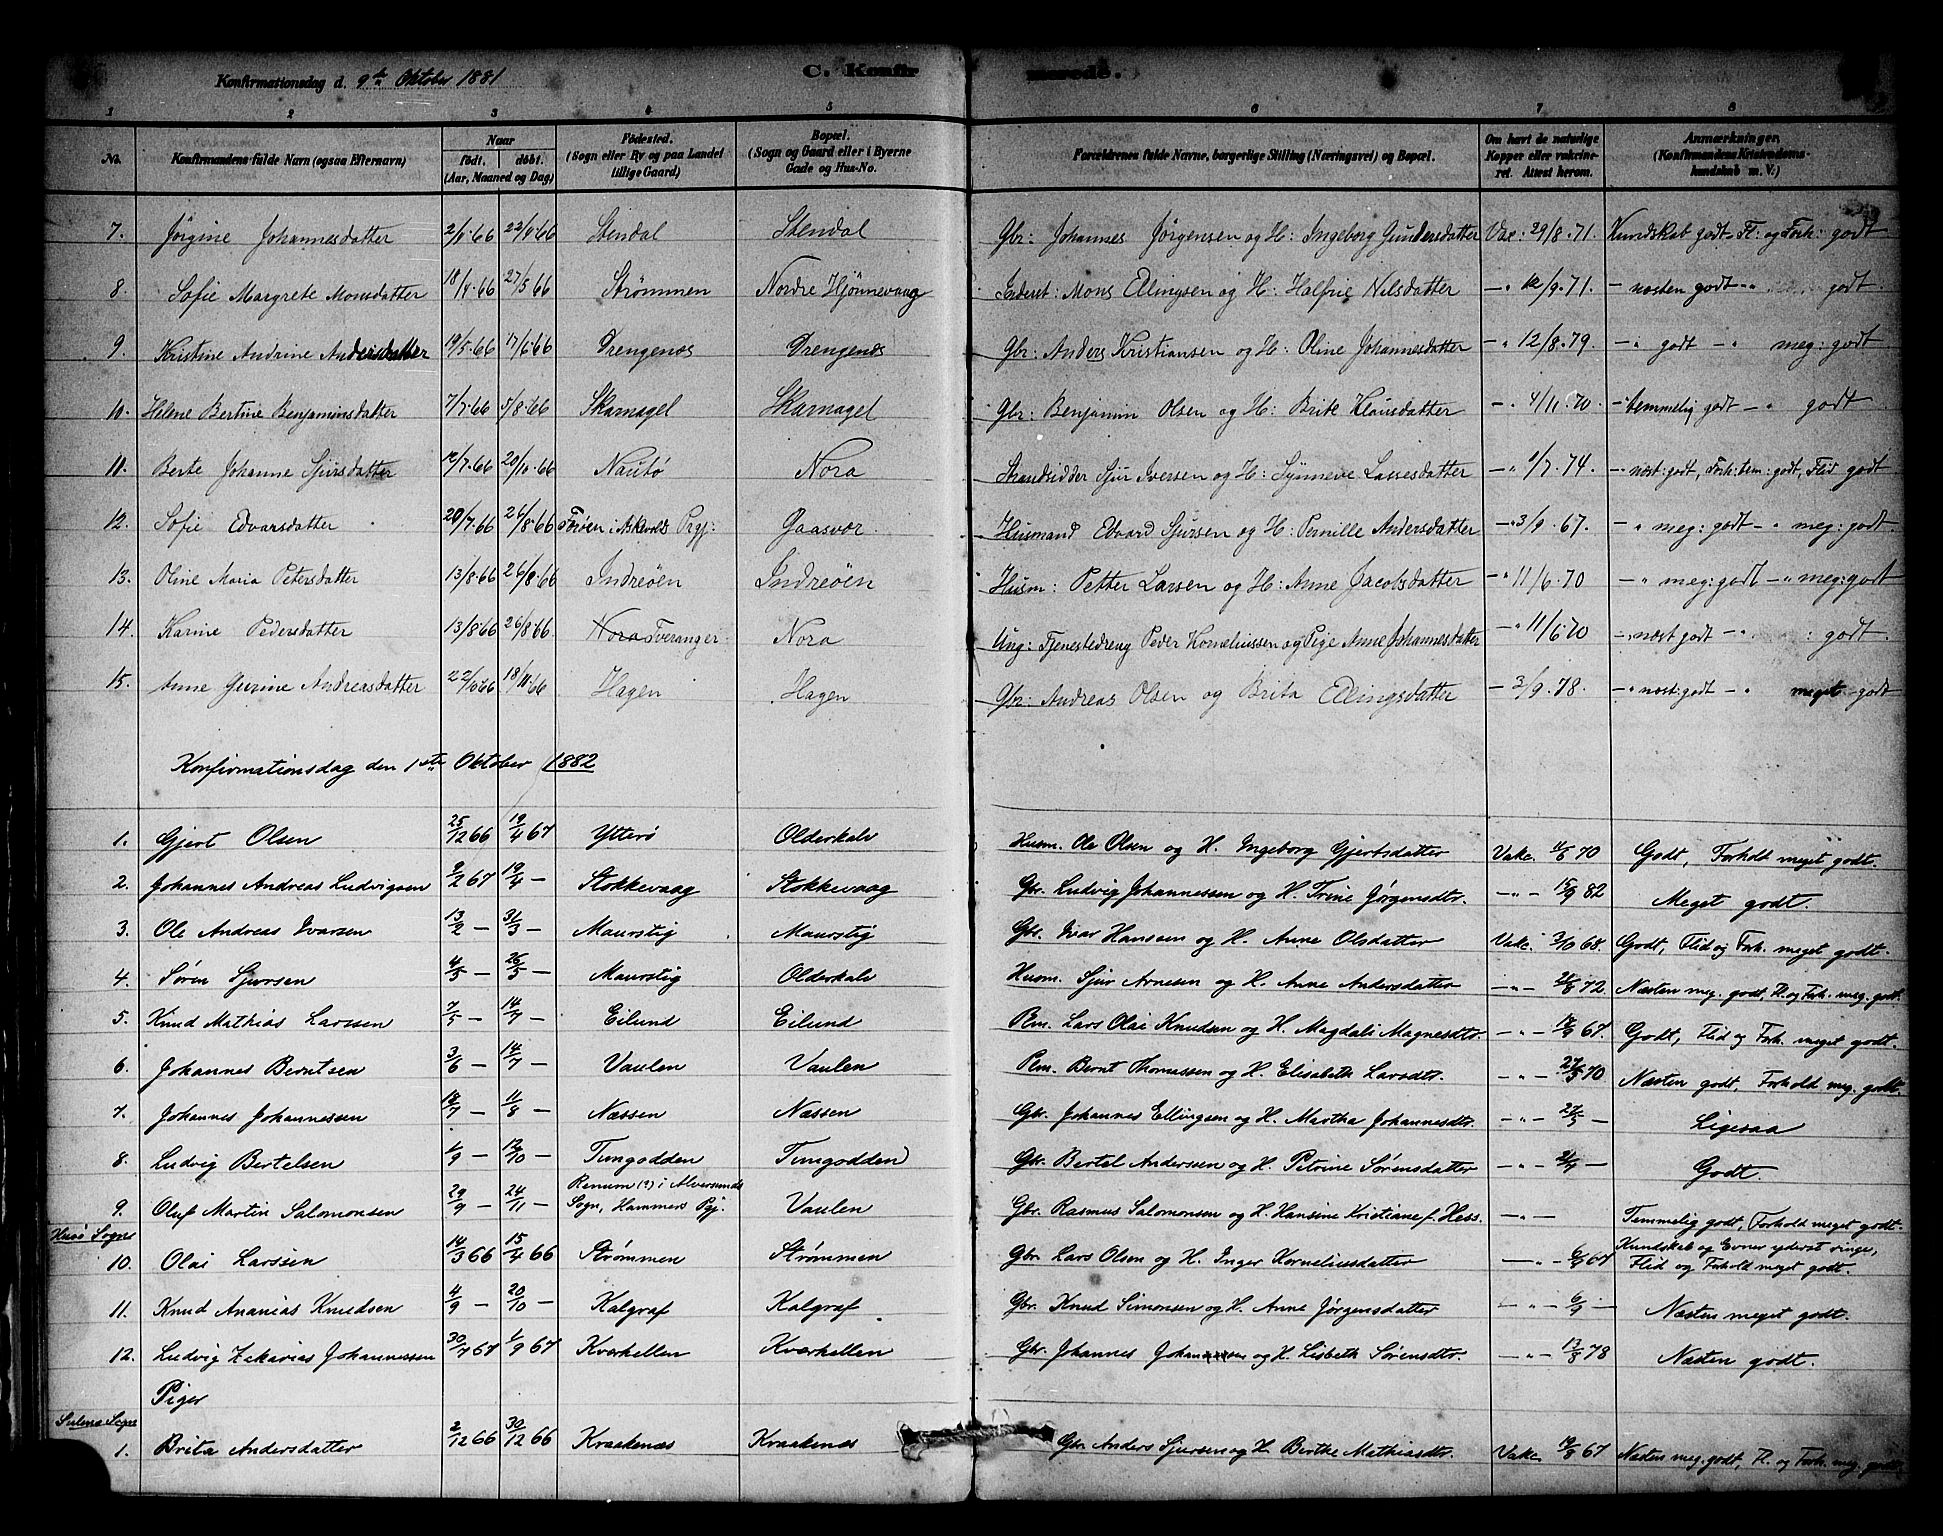 Konfirmationsdag d. 9de Oktober 1881 C. Konfirmerede.
1 2 3 4 5 6 7 8
No. Konfirmandens fulde Navn (ogsaa Efternavn) Naar födt. döbt. (Aar, Maaned og Dag) Födested. (Sogn eller By og paa Landet tillige Gaard) Bopæl. (Sogn og Gaard eller i Byerne Gade og Hus-No. Forældrenes fulde Navne, borgerlige Stilling (Næringsvei) og Bopæl. Om havt de naturlige Kopper eller vakcineret. Attest herom. Anmærkninger. (Konfirmandens Kristendomskundskab m. V.)
7. Jørgine Johannesdatter Stendal Stendal Gbr: Johannes Jørgensen og H: Ingeborg Gundersdatter Vac: 29/8.71. Kundskab godt. Fl: og Forh: godt
8. Sofie Margrete Monsdatter 18/4.66 27/5.66 Strømmen Nordre Hjønnevaag Mons Ellingsen og H: Halfrie Nilsdatter —" 12/9.71. —" næsten godt —" godt
9. Kristine Andrine Andersdatter 19/5.66 17/6.66 Drengenæs Drengenæs Gbr: Anders Kristiansen og H: Oline Johannesdatter —" 12/8.79. —" godt —" meg: godt
10. Helene Bertine Benjaminsdatter 7/7.66 5/8.66 Skarnagel Skarnagel Gbr: Benjamin Olsen og H: Brite Klausdatter —" 4/11.70. —" temmelig godt —" godt
11. Berte Johanne Sjursdatter 12/7.66 20/10.66 Nautø Nora Strandsidder Sjur Iversen og H: Synneve Lassesdatter —" 1/7.74. —" næst: godt, Forh: tem: godt, Flid godt
12. Sofie Edvarsdatter 20/7.66 24/8.66 Færøen i Askvolds Prgj: Gaasvær Husmand Edvard Sjursen og H: Pernille Andersdatter —" 3/9.67. —" meg: godt —" meg: godt
13. Oline Maria Petersdatter 13/8.66 26/8.66 Indreøen Indreøen Husm: Petter Larsen og H: Anne Jacobsdatter —" 11/6.70 —" meg: godt —" meg: godt
14. Karine Pedersdatter 13/8.66 26/8.66 Nora Tveranger Nora Ung: Tjenestedreng Peder Korneliussen og Pige Anne Johannesdatter —" 11/6.70 —" næst godt —" godt
15. Anne Gurine Andreasdatter 18/11.66 Hagen Hagen Gbr: Andreas Olsen og Brita Ellingsdatter — 3/9.78. —" næst: godt —" meget godt
Konfirmationsdag den 1ste Oktober 1882
1. Gjert Olsen 25/12 66 19/4 67 Ytterø Olderkalv Husm. Ole Olsen og H. Ingeborg Gjertsdatter Vakc. 11/6 70 Godt, Forholt meget godt.
2. Johannes Andreas Ludvigsen 9/2 67 19/4 — Stokkevaag Stokkevaag Gbr. Ludvig Johannessen og H. Trine Jørgensdtr. —"— 15/9 82 Meget godt.
3. Ole Andreas Ivarsen 13/2 — 31/3 — Maurstig Maurstig Gbr. Ivar Hansen og H. Anne Olsdatter Vakc. 3/10 68. Godt, Flid og Forh. meget godt.
4. Søren Sjursen 4/5 — 26/5 — Maurstig Olderkalv Husm. Sjur Arnesen og H. Anne Andersdatter —"— 72. Næsten meg. godt, Fl. og Forh. meg. godt.
5. Knud Mathias Larssen 7/5 — 14/7 — Eilund Eilund Plm. Lars Olai Knudsen og H. Magdali Magnesdtr. —"— 67. Godt, Flid og Forh. meget godt.
6. Johannes Berntsen 3/6 — 14/7 — Vaulen Vaulen Plm. Bernt Thomassen og H. Elisabeth Larsdtr. —"— 70 Næsten godt, Forhold meg. godt.
7. Johannes Johannessen 18/7 — 11/8 — Næssen Næssen Gbr. Johannes Ellingsen og H. Martha Johannesdtr. —"— — Ligesaa
8. Ludvig Bertelsen 1/9 — 12/10 — Tungodden Tungodden Gbr. Bertel Andersen og H. Petrine Sørensdatter —"— — Godt.
9. Oluf Martin Salomonsen 29/9 — 24/11 — Renum (?) i Alversunds Sogn, Hammers Pgj. Vaulen Gbr. Rasmus Salomonsen og H. Hansine Kristiane f. Hess. —"— Temmelig godt, Forhold meget godt.
Husø Sogn
10. Olai Larssen 14/3 66 15/4 66 Strømmen Strømmen Gbr. Lars Olsen og H. Inger Korneliusdatter —"— 67 Kundskab og Evner yderst ringe, Flid og Forhold meget godt.
11. Knud Ananias Knudsen 4/9 — 20/10 — Kalgraf Kalgraf Gbr. Knud Simonsen og H. Anne Jørgensdatter —"— — Næsten meget godt.
12. Ludvig Zakarias Johannessen 30/7 67 1/9 67 Kværhellen Kværhellen Gbr. Johannes H. Lisbeth Sørensdtr. —"— 13/8 78 Næsten godt.
Piger
Sulens Sogn
1. Brita Andersdatter 2/12 66 30/12 66 Kraakenæs Kraakenæs Gbr. Anders Sjursen og H. Berthe Mathiasdtr. Vakc. 67 Næsten meg. godt, Fl. og Forh. meg. godt.